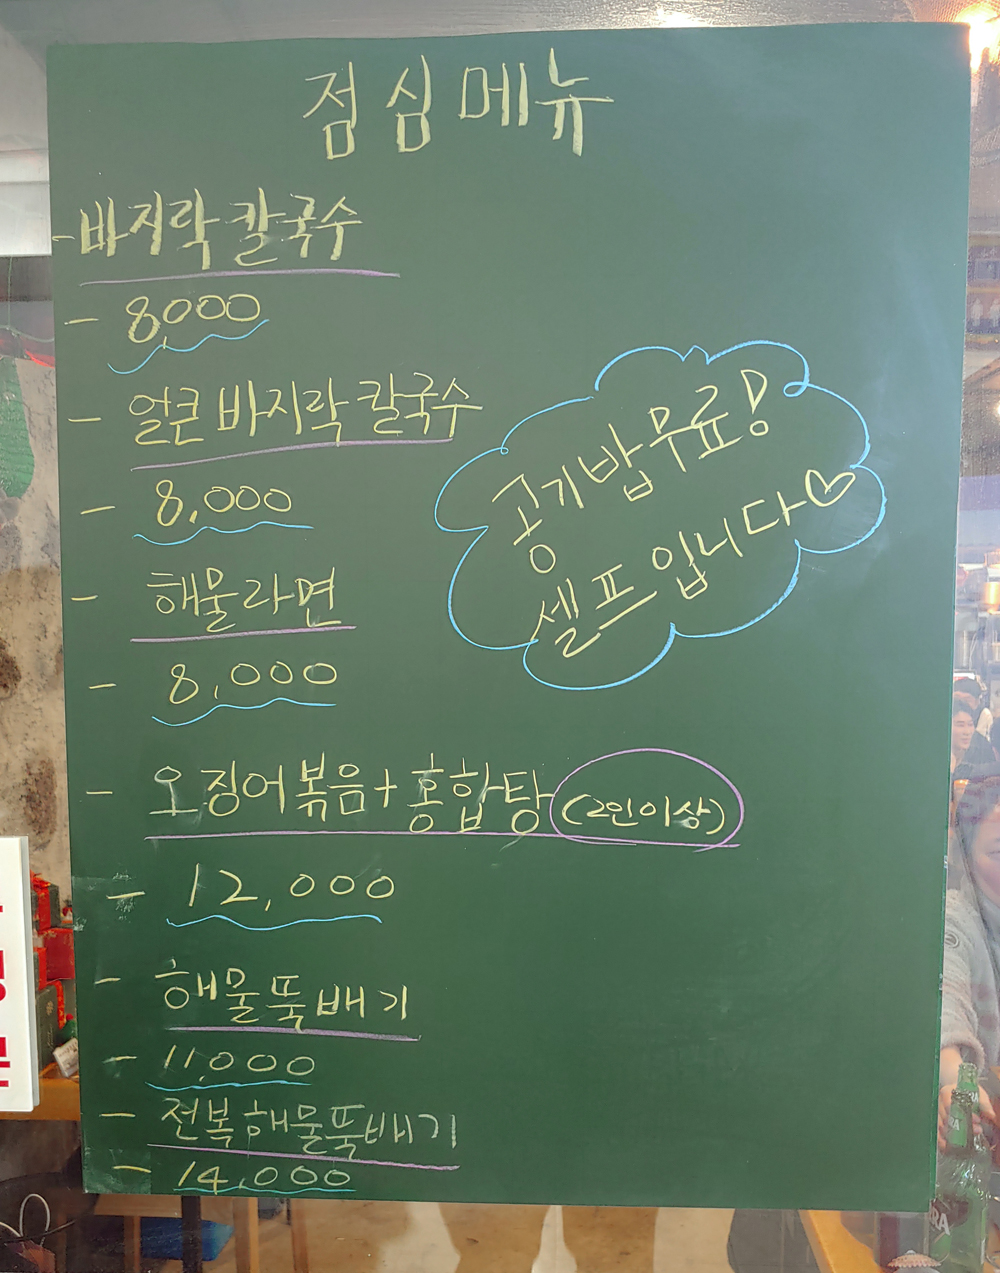 점심메뉴
-바지락칼국수
- 8,000
- 얼큰바지락칼국수
- 8,000
공기밥무료!
셀프입니다♡
- 해물라면
- 8,000
- 오징어볶음+홍합탕 (2인이상)
- 12,000
- 해물뚝배기
- 11,000
- 전복해물뚝배기
- 14,000